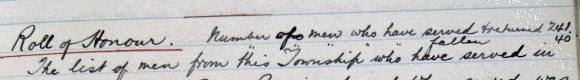 Roll of Honour. Number of men who have served & returned 241.
" " " " " fallen 40
The list of men from this Township who have served in